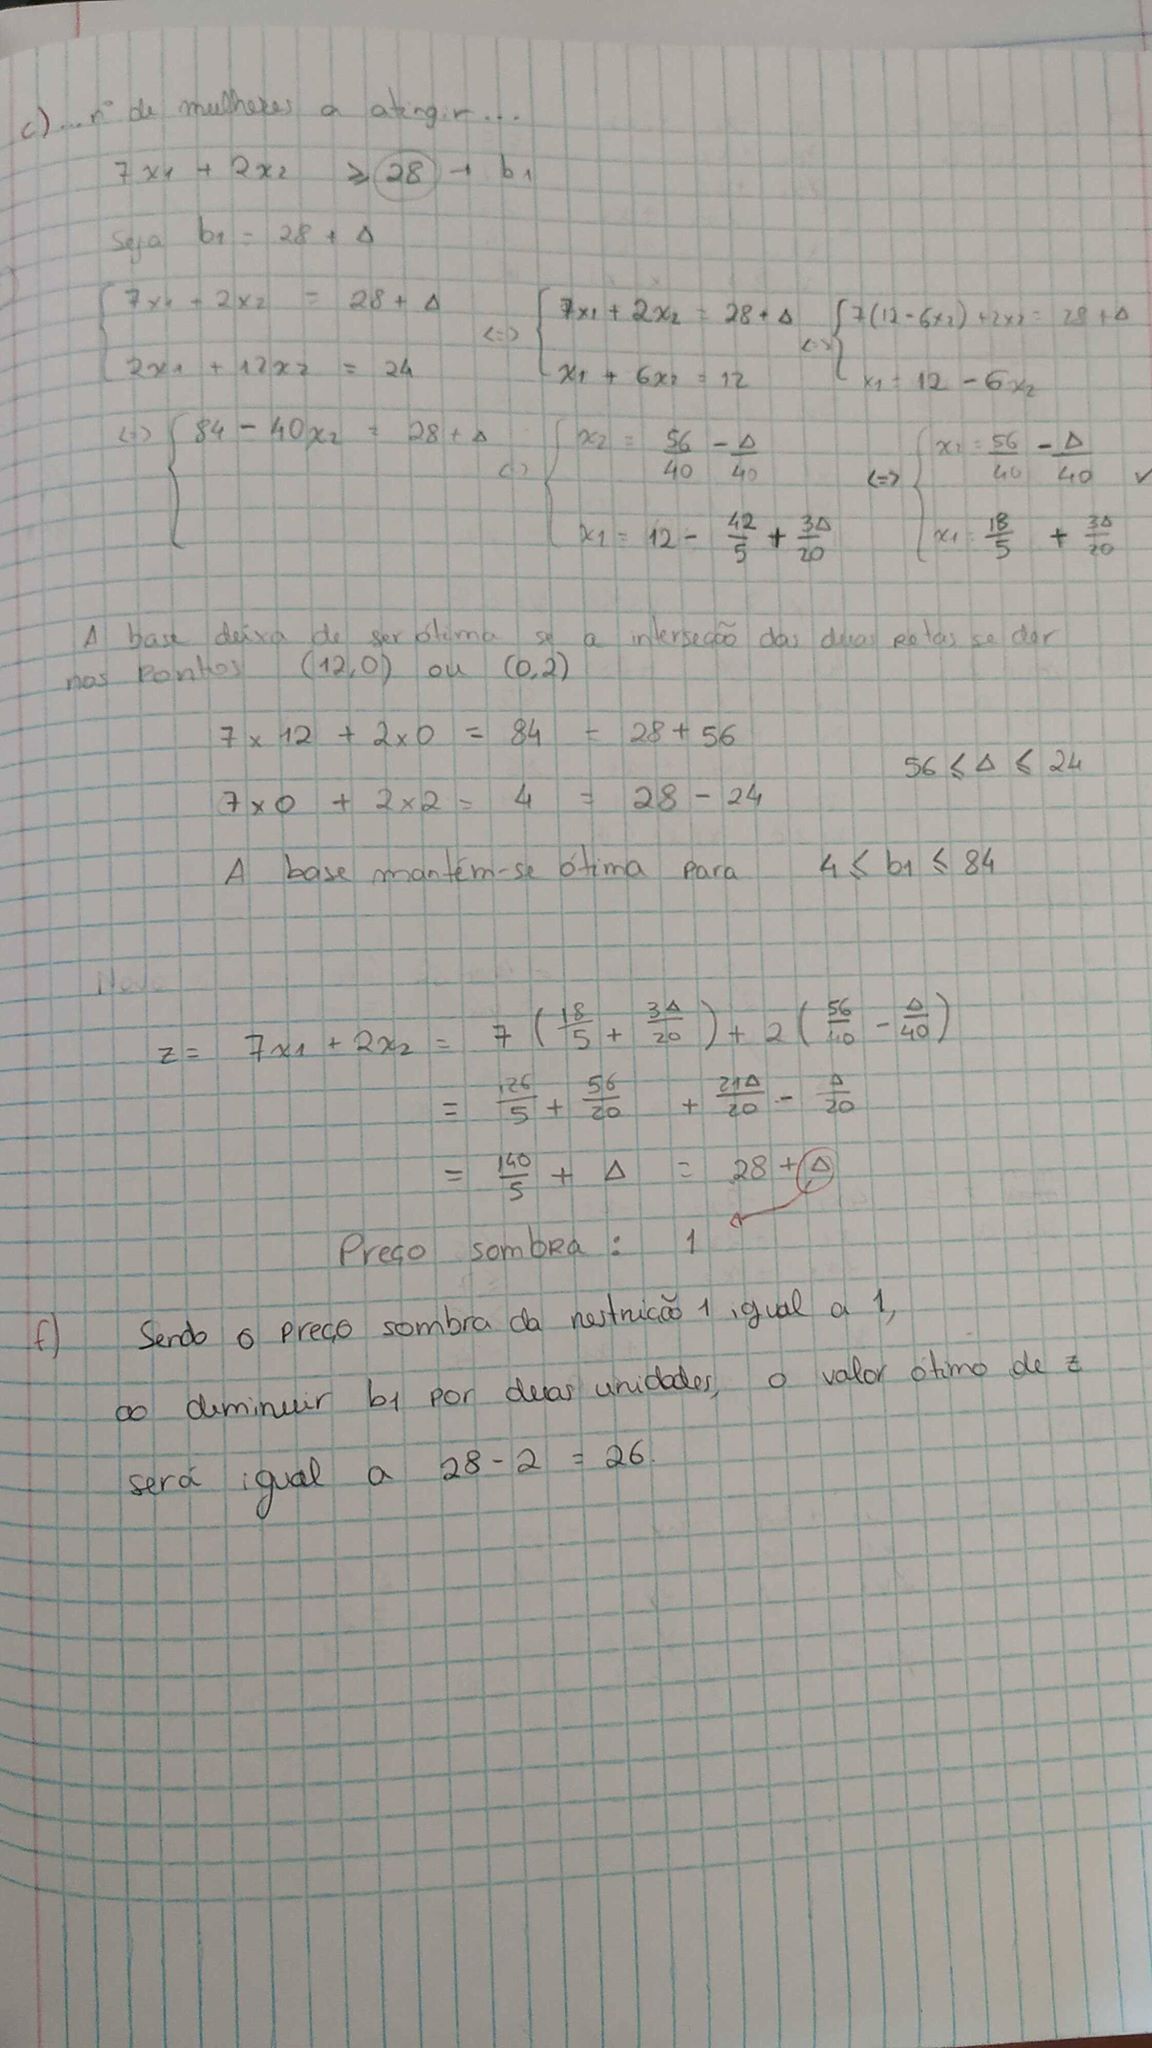 c) ...nº de mulheres a atingir...
7x1 + 2x2 ≥ 28 → b1
Seja b1 = 28 + Δ
{ 7x1 + 2x2 = 28 + Δ <=> { 7x1 + 2x2 = 28 + Δ <=> { 7(12 - 6x2) + 2x2 = 28 + Δ
2x1 + 12x2 = 24 x1 + 6x2 = 12 x1 = 12 - 6x2
<=> { 84 - 40x2 = 28 + Δ <=> { x2 = 56/40 - Δ/40 <=> { x2 = 56/40 - Δ/40 ✓
x1 = 12 - 42/5 + 3Δ/20 x1 = 18/5 + 3Δ/20
A base deixa de ser ótima se a interseção das duas retas se der
nos pontos (12,0) ou (0,2)
7 x 12 + 2 x 0 = 84 = 28 + 56
56 ≤ Δ ≤ 24
7 x 0 + 2 x 2 = 4 = 28 - 24
A base mantém-se ótima para 4 ≤ b1 ≤ 84
z = 7x1 + 2x2 = 7 (18/5 + 3Δ/20) + 2 (56/40 - Δ/40)
= 126/5 + 56/20 + 21Δ/20 - Δ/20
= 140/5 + Δ = 28 + Δ
Preço sombra : 1
f) Sendo o preço sombra da restrição 1 igual a 1,
ao diminuir b1 por duas unidades, o valor ótimo de z
será igual a 28 - 2 = 26.